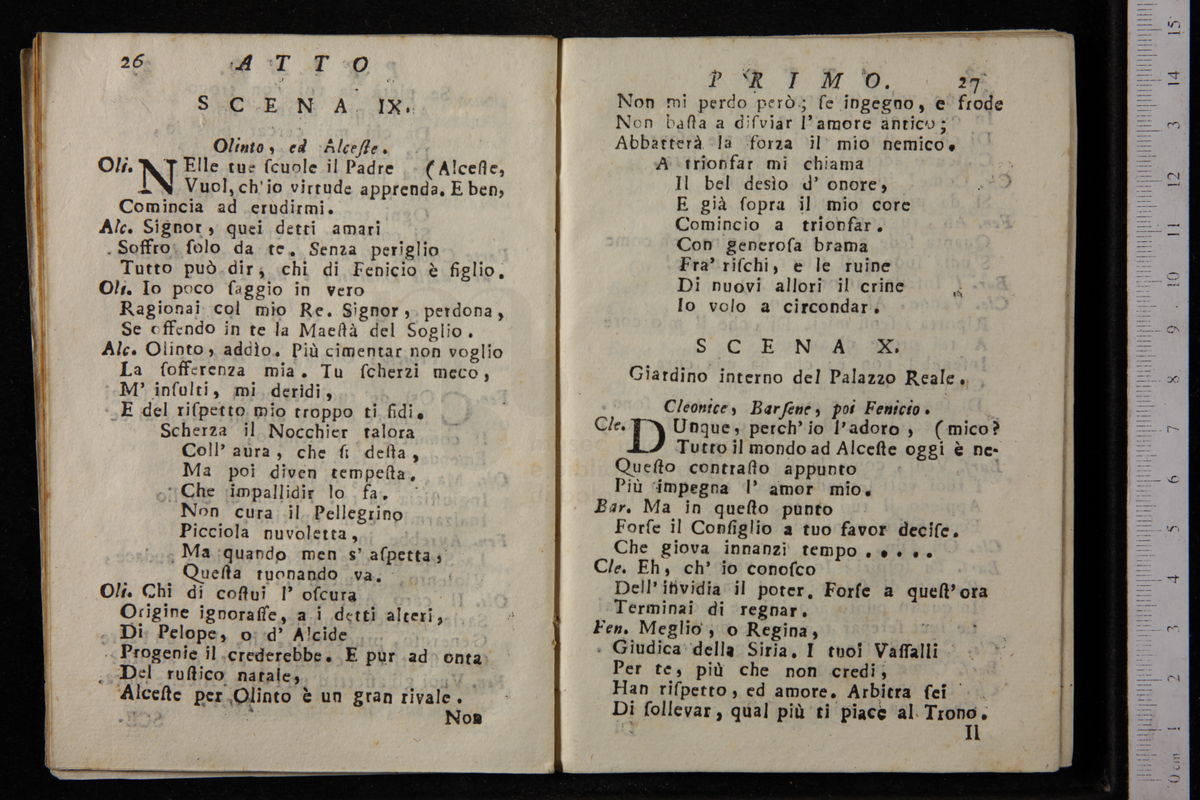 26 ATTO
SCENA IX.
Olinto, ed Alceſte.
Oli. NElle tue ſcuole il Padre (Alceſte,
Vuol, ch'io virtude apprenda. E ben,
Comincia ad erudirmi.
Alc. Signor, quei detti amari
Soffro ſolo da te. Senza periglio
Tutto può dir, chi di Fenicio è figlio.
Oli. Io poco ſaggio in vero
Ragionai col mio Re. Signor, perdona,
Se offendo in te la Maeſtà del Soglio.
Alc. Olinto, addìo. Più cimentar non voglio
La ſofferenza mia. Tu ſcherzi meco,
M' inſulti, mi deridi,
E del riſpetto mio troppo ti fidi.
Scherza il Nocchier talora
Coll' aura, che ſi deſta,
Ma poi diven tempeſta.
Che impallidir lo fa.
Non cura il Pellegrino
Picciola nuvoletta,
Ma quando men s' aſpetta,
Queſta tuonando va.
Oli. Chi di coſtui l' oſcura
Origine ignoraſſe, a i detti alteri,
Di Pelope, o d' Alcide
Progenie il crederebbe. E pur ad onta
Del ruſtico natale,
Alceſte per Olinto è un gran rivale.
Non
PRIMO. 27
Non mi perdo però; ſe ingegno, e frode
Non baſta a diſviar l'amore antico;
Abbatterà la forza il mio nemico.
A trionfar mi chiama
Il bel desìo d' onore,
E già ſopra il mio core
Comincio a trionfar.
Con generoſa brama
Fra' riſchi, e le ruine
Di nuovi allori il crine
Io volo a circondar.
SCENA X.
Giardino interno del Palazzo Reale.
Cleonice, Barſene, poi Fenicio.
Cle. DUnque, perch' io l'adoro, (mico?
Tutto il mondo ad Alceſte oggi è ne-
Queſto contraſto appunto
Più impegna l' amor mio.
Bar. Ma in queſto punto
Forſe il Conſiglio a tuo favor deciſe.
Che giova innanzi tempo . . . . .
Cle. Eh, ch' io conoſco
Dell' invidia il poter. Forſe a queſt' ora
Terminai di regnar.
Fen. Meglio, o Regina,
Giudica della Siria. I tuoi Vaſſalli
Per te, più che non credi,
Han riſpetto, ed amore. Arbitra ſei
Di ſollevar, qual più ti piace al Trono.
Il
0 cm 1 2 3 4 5 6 7 8 9 10 11 12 13 14 15